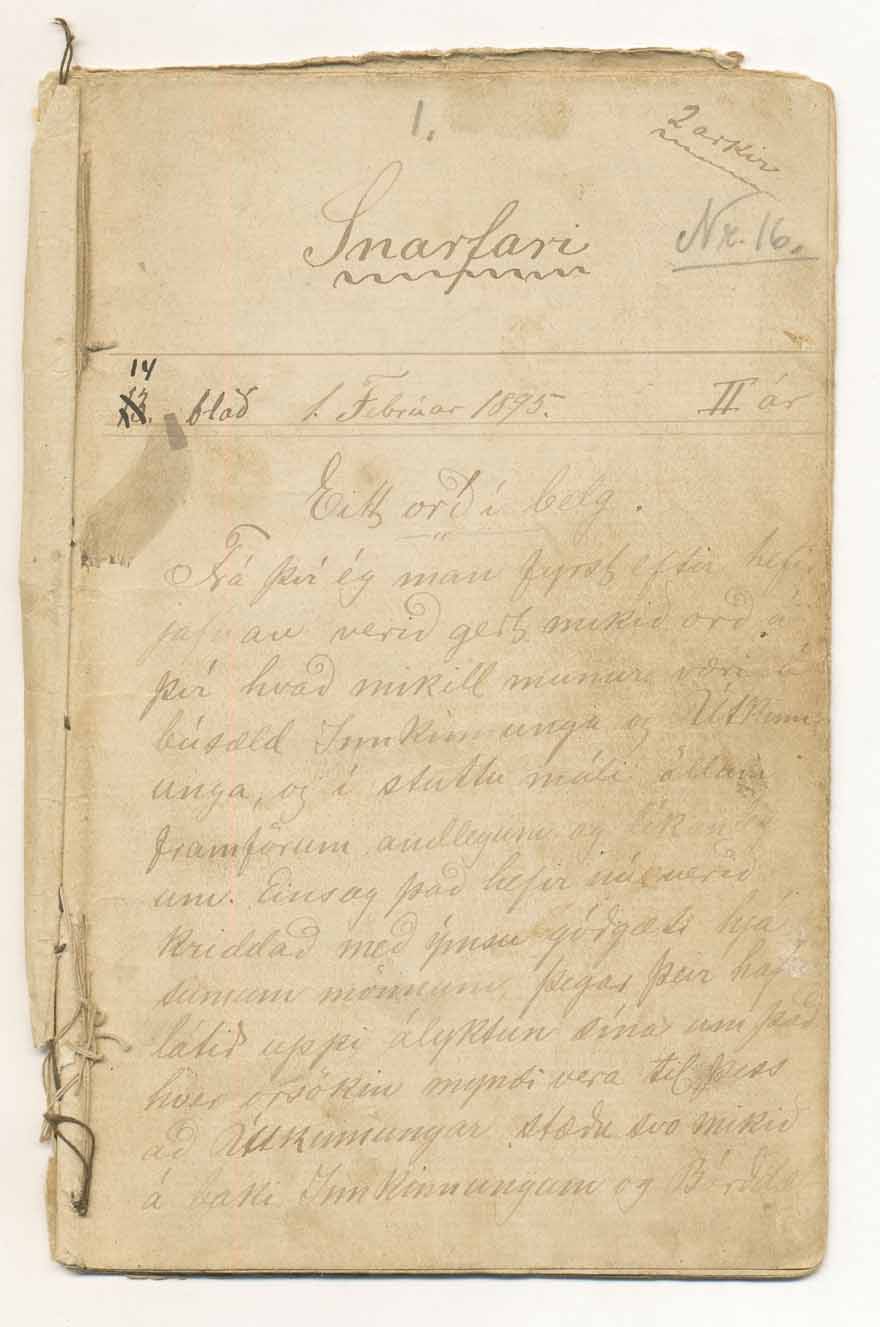 1.
2 arkir
Snarfari
Nr. 16.
14
blað 1. Februar 1895. II ár
Eitt orð í belg.
Frá því ég man fyrst eftir hefir
jafnan verið gert mikið orð á
því hvað mikill munur væri á
búsæld Innkinnunga og Útkinn-
unga, og í stuttu máli öllum
framförum andlegum og líkamleg
um. Eins og það hefir verið
kriddað með ýmsu góðgæti hjá
sumum mönnum, þegar þeir haf
látið uppi ályktun sína um það
hver orsökin myndi vera til þess
að Útkinnungar stæðu svo mikið
á baki Innkinnungum og